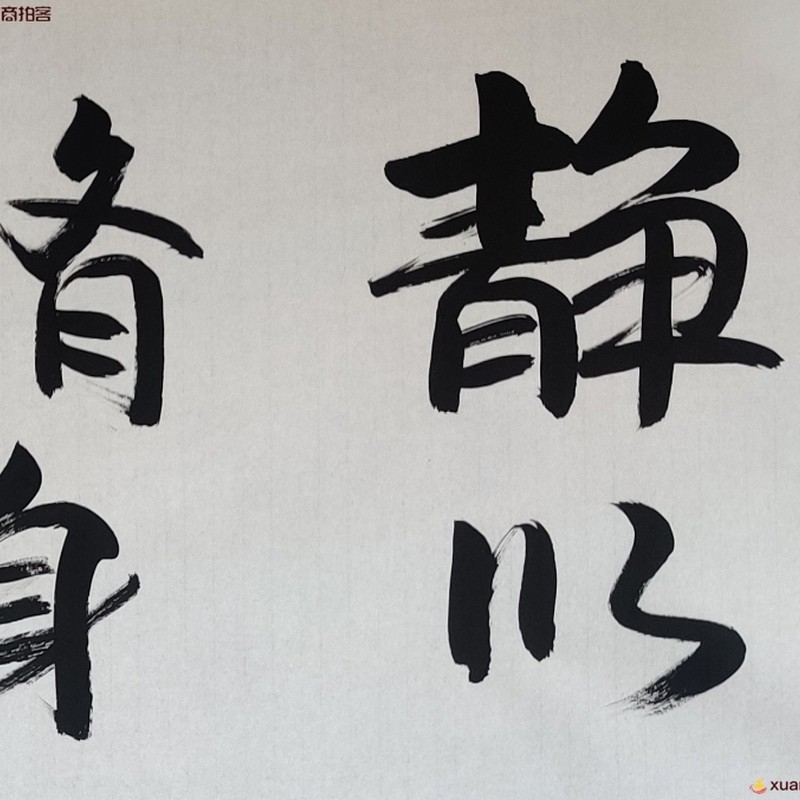 静以
脩身
商拍客
xuan